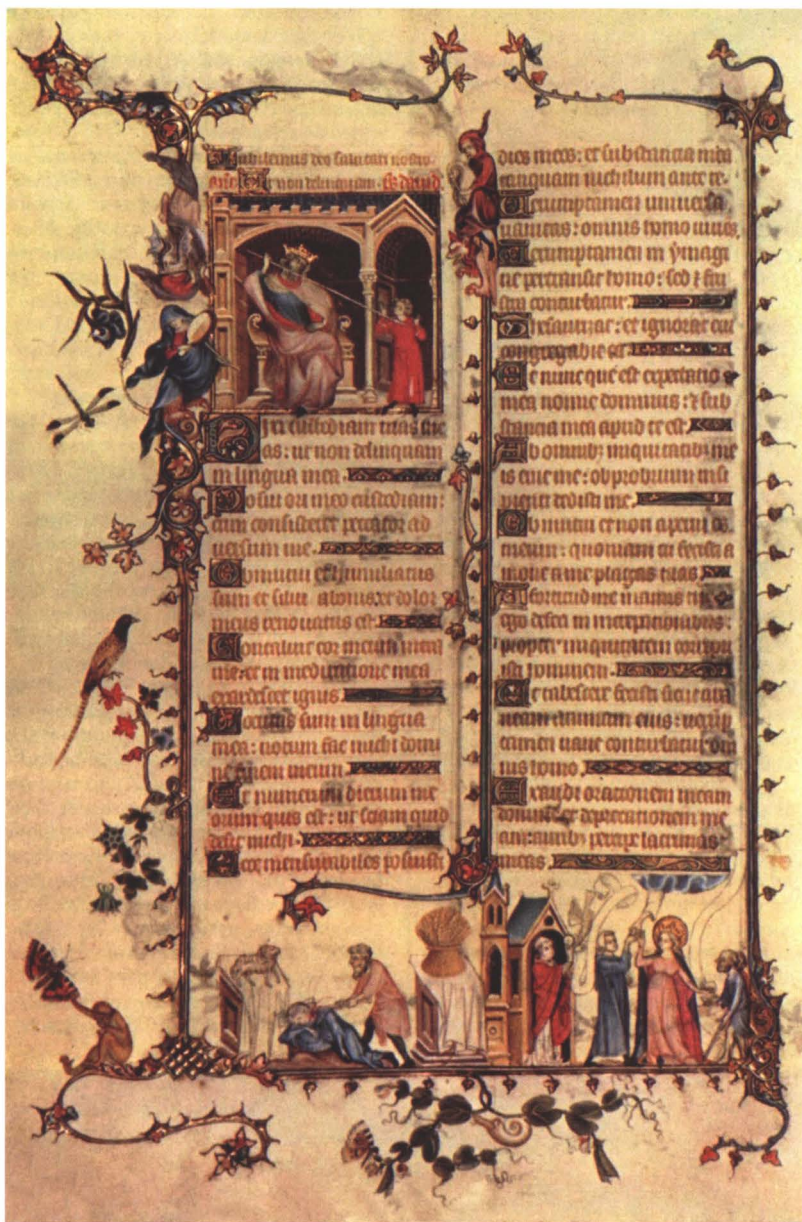 Iubilemus deo salutari nostro.
Ut non delinquam. ps david
Dixi custodiam uias me
as: ut non delinquam
in lingua mea.
Posui ori meo custodiam:
cum consisteret peccator ad
uersum me.
Obmutui et humiliatus
sum et silui a bonis: et dolor
meus renouatus est.
Concaluit cor meum intra
me: et in meditatione mea
exardescet ignis.
Locutus sum in lingua
mea: notum fac michi domi
ne finem meum.
Et numerum dierum me
orum quis est: ut sciam quid
desit michi.
Ecce mensurabiles posuisti
dies meos: et substancia mea
tanquam nichilum ante te.
Uerumptamen uniuersa
uanitas: omnis homo uiuens.
Uerumptamen in ymagi
ne pertransit homo: sed et frus
tra conturbatur.
Thesaurizat: et ignorat cui
congregabit ea.
Et nunc que est expectatio
mea nonne dominus: et sub
stancia mea apud te est.
Ab omnibus iniquitatibus me
is erue me: obprobrium insi
pienti dedisti me.
Obmutui et non aperui os
meum: quoniam tu fecisti a
moue a me plagas tuas.
A fortitudine manus tue
ego defeci in increpationibus:
propter iniquitatem corripu
isti hominem.
Et tabescere fecisti sicut ara
neam animam eius: uerump
tamen uane conturbatur om
nis homo.
Exaudi orationem meam
domine et deprecationem me
am: auribus percipe lacrimas
meas.